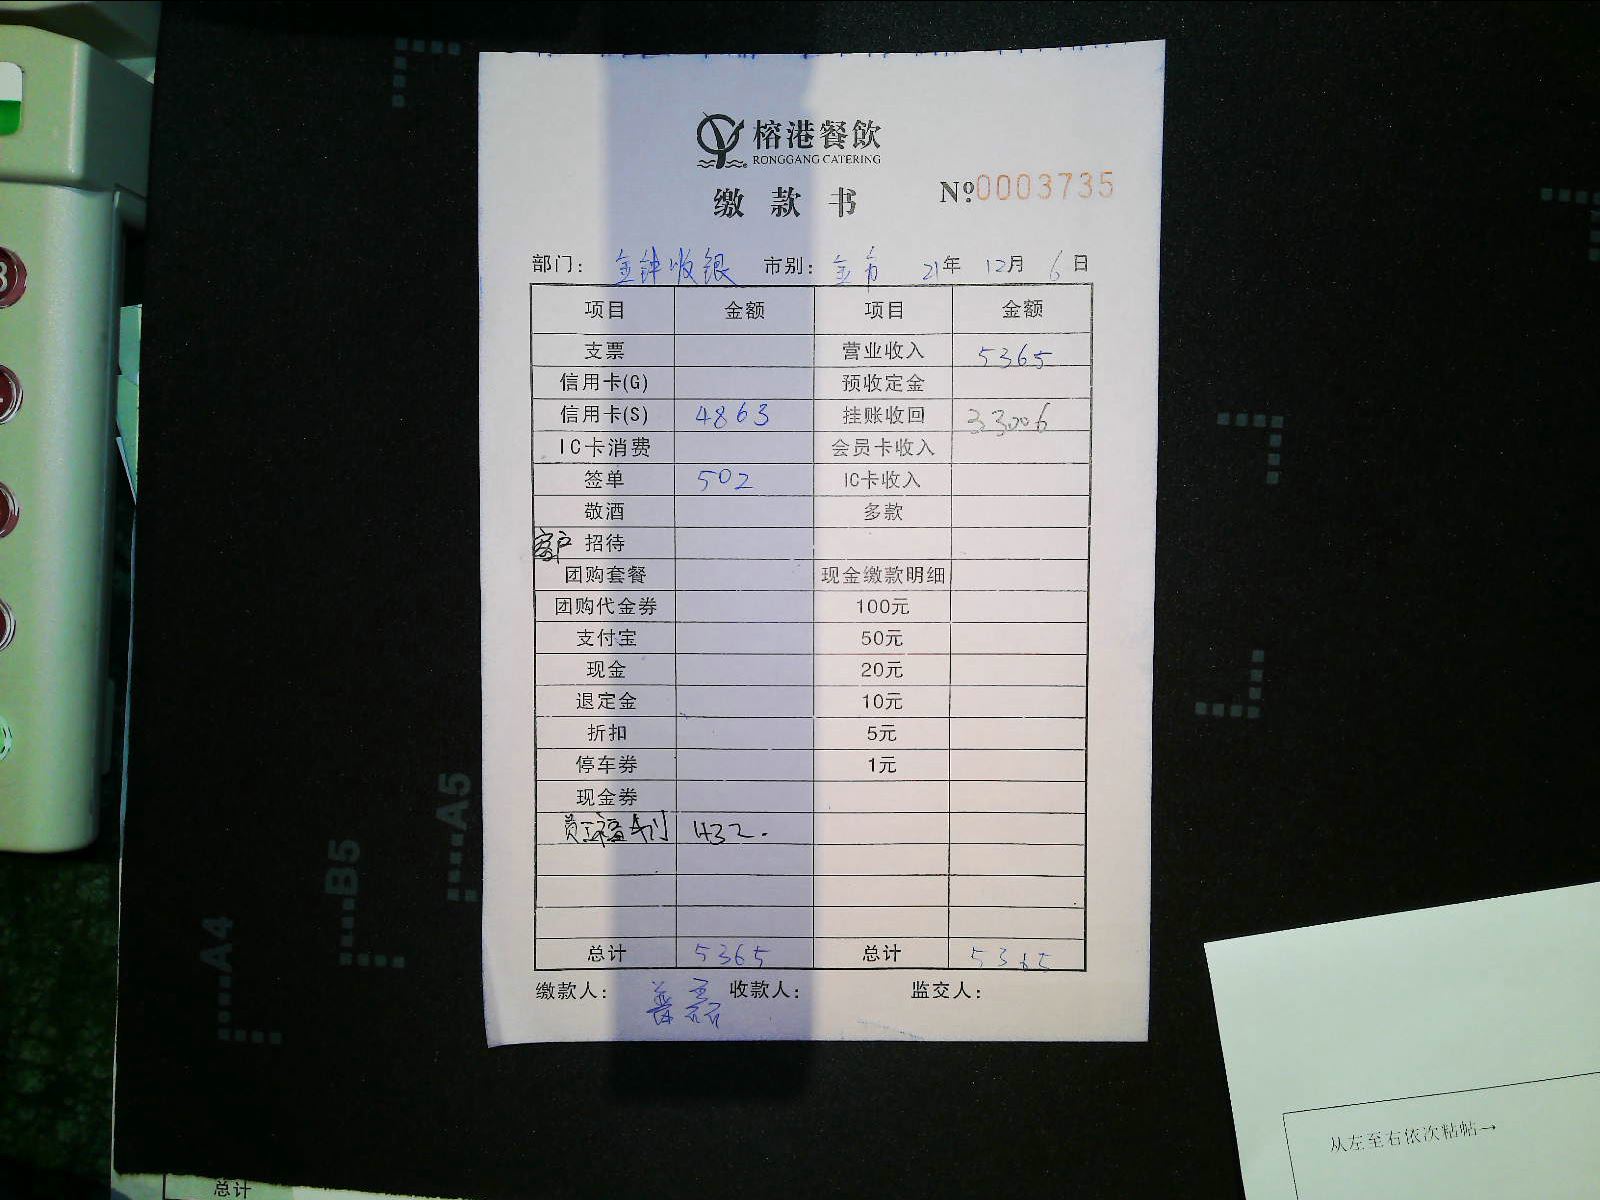 榕港餐飲
RONGGANG CATERING
缴款书 №0003735
部门: 金钟收银 市别: 全市 21年 12月 6日
项目 金额 项目 金额
支票 营业收入 5365
信用卡(G) 预收定金
信用卡(S) 4863 挂账收回 33006
IC卡消费 会员卡收入
签单 502 IC卡收入
敬酒 多款
客户 招待
团购套餐 现金缴款明细
团购代金券 100元
支付宝 50元
现金 20元
退定金 10元
折扣 5元
停车券 1元
现金券
员工福利 432.
总计 5365 总计 5365
缴款人: 收款人: 监交人:
A5
B5
A4
从左至右依次粘帖→
总计